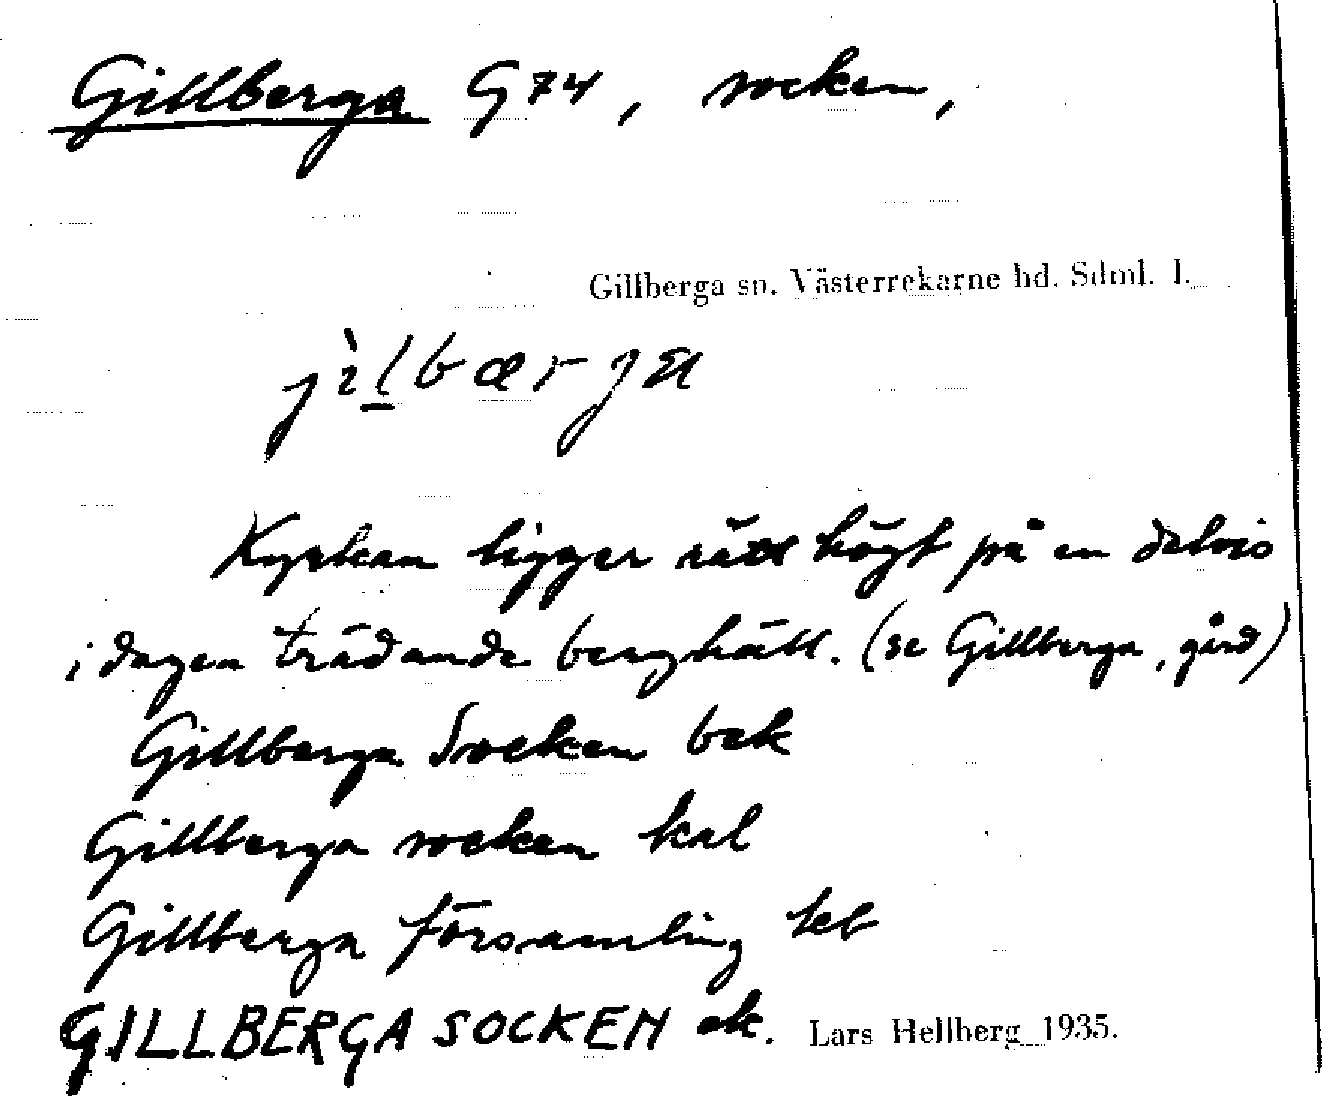 Gillberga G74, socken,
Gillberga sn. Västerrekarne hd. Sdml. l.
jìlbærja
Kyrkan ligger rätt högt på en delvis
i dagen trädande berghäll. (se Gillberga, gård)
Gillberga Socken bek
Gillberga socken kal
Gillberga församling keb
GILLBERGA SOCKEN ek. Lars Hellberg 1935.